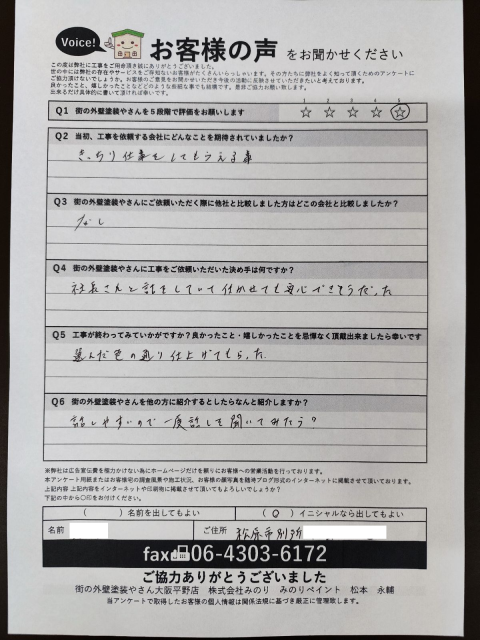 Voice!
お客様の声 をお聞かせください
この度は弊社に工事をご用命頂き誠にありがとうございました。
世の中には弊社の存在やサービスをご存知ないお客様がたくさんいらっしゃいます。その方たちに弊社をよく知って頂くためのアンケートに
ご協力頂けないでしょうか。お客様のご意見をお聞かせいただき今後の活動に反映させていただきたいと考えております。
良かったこと、嬉しかったことなどどのような些細な事でも結構です。是非ご協力お願い致します。
出来るだけ具体的に書いて頂ければ幸いです。
Q1 街の外壁塗装やさんを5段階で評価をお願いします
1 2 3 4 5
☆ ☆ ☆ ☆ ☆
Q2 当初、工事を依頼する会社にどんなことを期待されていましたか?
きっちり仕事をしてもらえる事
Q3 街の外壁塗装やさんにご依頼いただく際に他社と比較しました方はどこの会社と比較しましたか?
なし
Q4 街の外壁塗装やさんに工事をご依頼いただいた決め手は何ですか?
社長さんと話をしていて任かせても安心できそうだった
Q5 工事が終わってみていかがですか?良かったこと・嬉しかったことを忌憚なく頂戴出来ましたら幸いです
選んだ色の通り仕上げてもらった
Q6 街の外壁塗装やさんを他の方に紹介するとしたらなんと紹介しますか?
話しやすいので一度話しを聞いてみたら?
※弊社は広告宣伝費を極力かけない為にホームページだけを頼りにお客様への営業活動を行っております。
本アンケート用紙またはお客様宅の調査風景や施工状況、お客様の顔写真を随時ブログ形式のインターネットに掲載させて頂いております。
上記内容 上記内容をインターネットや印刷物に掲載させて頂いてもよろしいでしょうか?
下記の中から〇をお付けください。
( )名前を出してもよい (〇)イニシャルなら出してもよい
名前 ご住所 松原市別所
fax 06-4303-6172
ご協力ありがとうございました
街の外壁塗装やさん大阪平野店 株式会社みのり みのりペイント 松本 永輔
当アンケートで取得したお客様の個人情報は関係法規に基づき厳正に管理致します。